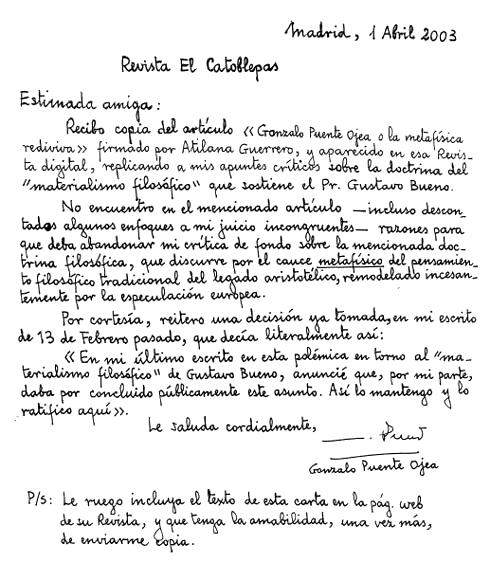 Madrid, 1 Abril 2003
Revista El Catoblepas
Estimada amiga:
Recibo copia del artículo «Gonzalo Puente Ojea o la metafísica
rediviva» firmado por Atilana Guerrero, y aparecido en esa Revis-
ta digital, replicando a mis apuntes críticos sobre la doctrina del
"materialismo filosófico" que sostiene el Pr. Gustavo Bueno.
No encuentro en el mencionado artículo —incluso descon-
tados algunos enfoques a mi juicio incongruentes— razones para
que deba abandonar mi crítica de fondo sobre la mencionada doc-
trina filosófica, que discurre por el cauce metafísico del pensamien-
to filosófico tradicional del legado aristotélico, remodelado incesan-
temente por la especulación europea.
Por cortesía, reitero una decisión ya tomada, en mi escrito
de 13 de Febrero pasado, que decía literalmente así:
«En mi último escrito en esta polémica en torno al "ma-
terialismo filosófico" de Gustavo Bueno, anuncié que, por mi parte,
daba por concluido públicamente este asunto. Así lo mantengo y lo
ratifico aquí».
Le saluda cordialmente,
Gonzalo Puente Ojea
P/s: Le ruego incluya el texto de esta carta en la pág. web
de su Revista, y que tenga la amabilidad, una vez más,
de enviarme copia.